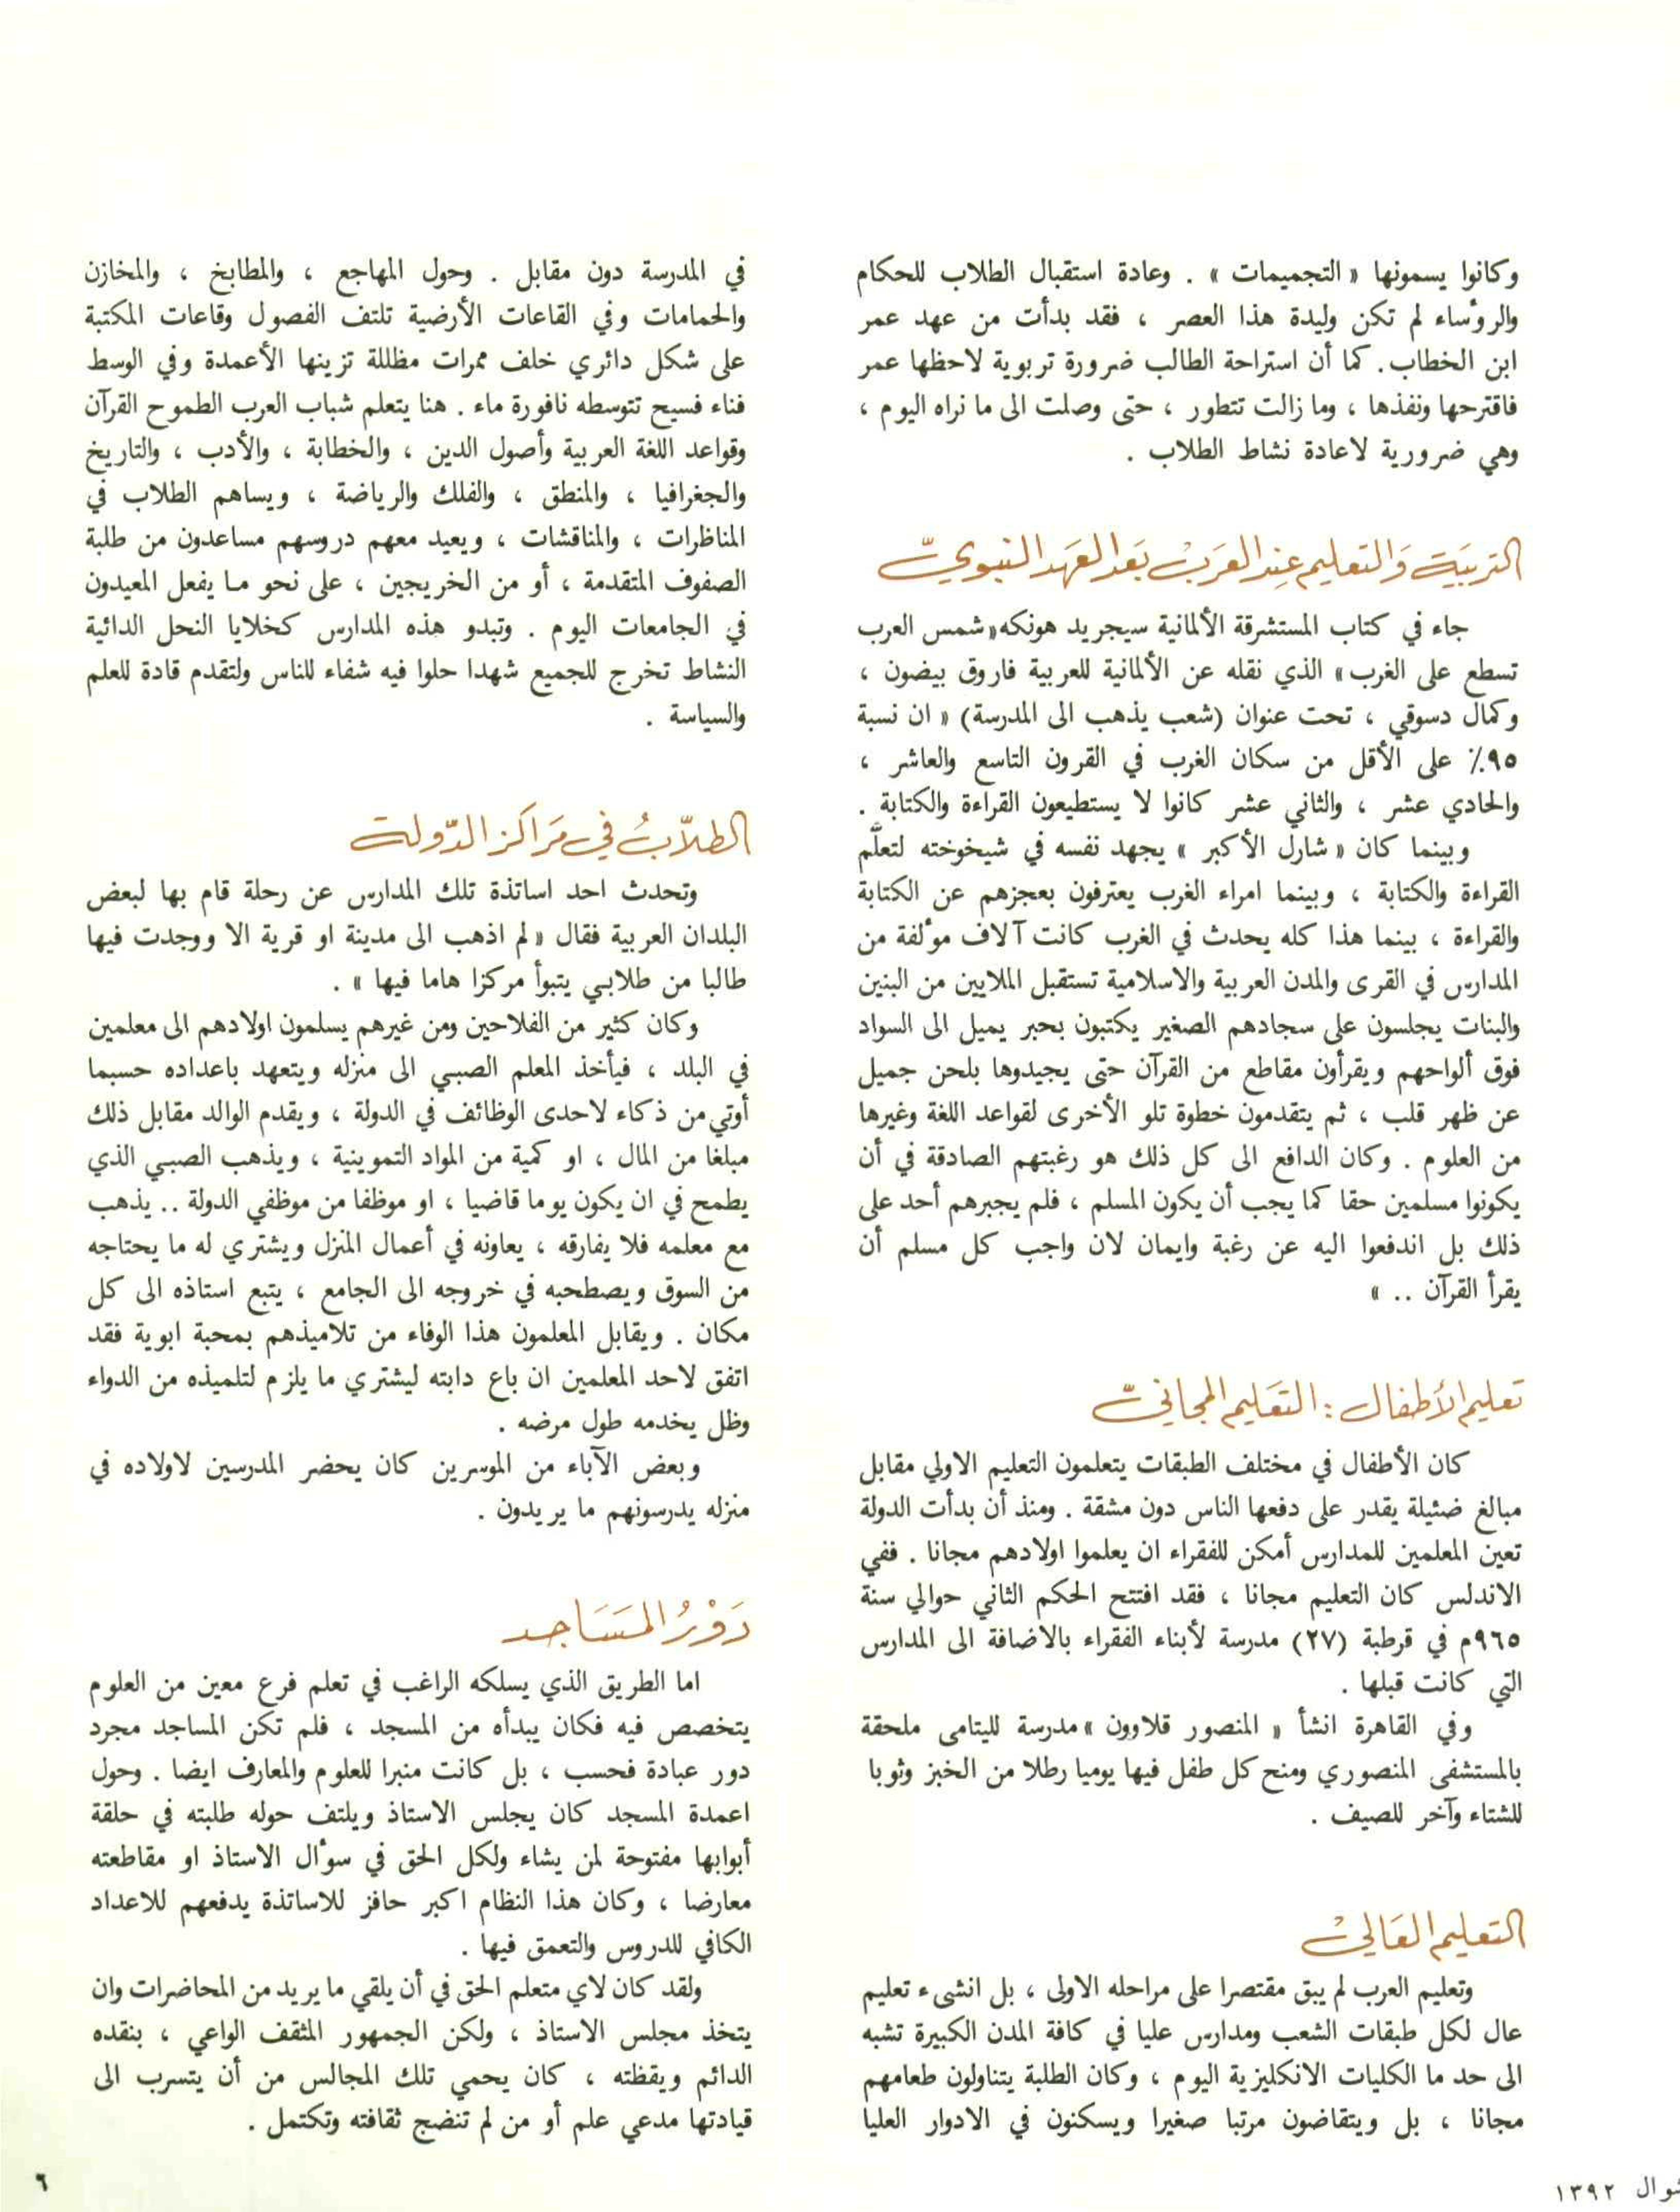 وكانوا يسمونها « التجميمات » . وعادة استقبال الطلاب للحكام
والرؤساء لم تكن وليدة هذا العصر ، فقد بدأت من عهد عمر
ابن الخطاب . كما أن استراحة الطالب ضرورة تربوية لاحظها عمر
فاقترحها ونفذها ، وما زالت تتطور ، حتى وصلت الى ما نراه اليوم ،
وهي ضرورية لاعادة نشاط الطلاب .
التربيَة وَالتعليم عِند العَربْ بَعد العَهد النبويّ
جاء في كتاب المستشرقة الألمانية سيجريد هونكه «شمس العرب
تسطع على الغرب » الذي نقله عن الألمانية للعربية فاروق بيضون ،
وكمال دسوقي ، تحت عنوان (شعب يذهب الى المدرسة) « ان نسبة
٩٥٪ على الأقل من سكان الغرب في القرون التاسع والعاشر ،
والحادي عشر ، والثاني عشر كانوا لا يستطيعون القراءة والكتابة .
وبينما كان « شارل الأكبر » يجهد نفسه في شيخوخته لتعلَّم
القراءة والكتابة ، وبينما امراء الغرب يعترفون بعجزهم عن الكتابة
والقراءة ، بينما هذا كله يحدث في الغرب كانت آلاف مؤلفة من
المدارس في القرى والمدن العربية والاسلامية تستقبل الملايين من البنين
والبنات يجلسون على سجادهم الصغير يكتبون بحبر يميل الى السواد
فوق ألواحهم ويقرأون مقاطع من القرآن حتى يجيدوها بلحن جميل
عن ظهر قلب ، ثم يتقدمون خطوة تلو الأخرى لقواعد اللغة وغيرها
من العلوم . وكان الدافع الى كل ذلك هو رغبتهم الصادقة في أن
يكونوا مسلمين حقا كما يجب أن يكون المسلم ، فلم يجبرهم أحد على
ذلك بل اندفعوا اليه عن رغبة وايمان لان واجب كل مسلم أن
يقرأ القرآن .. »
تعليم الأطفال : التعَليم المجانيّ
كان الأطفال في مختلف الطبقات يتعلمون التعليم الاولي مقابل
مبالغ ضئيلة يقدر على دفعها الناس دون مشقة . ومنذ أن بدأت الدولة
تعين المعلمين للمدارس أمكن للفقراء ان يعلموا اولادهم مجانا . ففي
الاندلس كان التعليم مجانا ، فقد افتتح الحكم الثاني حوالي سنة
٩٦٥م في قرطبة (٢٧) مدرسة لأبناء الفقراء بالاضافة الى المدارس
التي كانت قبلها .
وفي القاهرة انشأ « المنصور قلاوون » مدرسة لليتامى ملحقة
بالمستشفى المنصوري ومنح كل طفل فيها يوميا رطلا من الخبز وثوبا
للشتاء وآخر للصيف .
التعليم العَاليْ
وتعليم العرب لم يبق مقتصرا على مراحله الاولى ، بل انشىء تعليم
عال لكل طبقات الشعب ومدارس عليا في كافة المدن الكبيرة تشبه
الى حد ما الكليات الانكليزية اليوم ، وكان الطلبة يتناولون طعامهم
مجانا ، بل ويتقاضون مرتبا صغيرا ويسكنون في الادوار العليا
في المدرسة دون مقابل . وحول المهاجع ، والمطابخ ، والمخازن
والحمامات وفي القاعات الأرضية تلتف الفصول وقاعات المكتبة
على شكل دائري خلف ممرات مظللة تزينها الأعمدة وفي الوسط
فناء فسيح تتوسطه نافورة ماء . هنا يتعلم شباب العرب الطموح القرآن
وقواعد اللغة العربية وأصول الدين ، والخطابة ، والأدب ، والتاريخ
والجغرافيا ، والمنطق ، والفلك والرياضة ، ويساهم الطلاب في
المناظرات ، والمناقشات ، ويعيد معهم دروسهم مساعدون من طلبة
الصفوف المتقدمة ، أو من الخريجين ، على نحو ما يفعل المعيدون
في الجامعات اليوم . وتبدو هذه المدارس كخلايا النحل الدائبة
النشاط تخرج للجميع شهدا حلوا فيه شفاء للناس ولتقدم قادة للعلم
والسياسة .
الطلاّبُ في مَراكز الدّولة
وتحدث احد اساتذة تلك المدارس عن رحلة قام بها لبعض
البلدان العربية فقال « لم اذهب الى مدينة او قرية الا ووجدت فيها
طالبا من طلابي يتبوأ مركزا هاما فيها » .
وكان كثير من الفلاحين ومن غيرهم يسلمون اولادهم الى معلمين
في البلد ، فيأخذ المعلم الصبي الى منزله ويتعهد باعداده حسبما
أوتي من ذكاء لاحدى الوظائف في الدولة ، ويقدم الوالد مقابل ذلك
مبلغا من المال ، او كمية من المواد التموينية ، ويذهب الصبي الذي
يطمح في ان يكون يوما قاضيا ، او موظفا من موظفي الدولة .. يذهب
مع معلمه فلا يفارقه ، يعاونه في أعمال المنزل ويشتري له ما يحتاجه
من السوق ويصطحبه في خروجه الى الجامع ، يتبع استاذه الى كل
مكان . ويقابل المعلمون هذا الوفاء من تلاميذهم بمحبة ابوية فقد
اتفق لاحد المعلمين ان باع دابته ليشتري ما يلزم لتلميذه من الدواء
وظل يخدمه طول مرضه .
وبعض الآباء من الموسرين كان يحضر المدرسين لاولاده في
منزله يدرسونهم ما يريدون .
دَوْرُ المسَاجد
اما الطريق الذي يسلكه الراغب في تعلم فرع معين من العلوم
يتخصص فيه فكان يبدأه من المسجد ، فلم تكن المساجد مجرد
دور عبادة فحسب ، بل كانت منبرا للعلوم والمعارف ايضا . وحول
اعمدة المسجد كان يجلس الاستاذ ويلتف حوله طلبته في حلقة
أبوابها مفتوحة لمن يشاء ولكل الحق في سؤال الاستاذ او مقاطعته
معارضا ، وكان هذا النظام اكبر حافز للاساتذة يدفعهم للاعداد
الكافي للدروس والتعمق فيها .
ولقد كان لاي متعلم الحق في أن يلقي ما يريد من المحاضرات وان
يتخذ مجلس الاستاذ ، ولكن الجمهور المثقف الواعي ، بنقده
الدائم ويقظته ، كان يحمي تلك المجالس من أن يتسرب الى
قيادتها مدعي علم أو من لم تنضج ثقافته وتكتمل .
شوال ١٣٩٢
٦